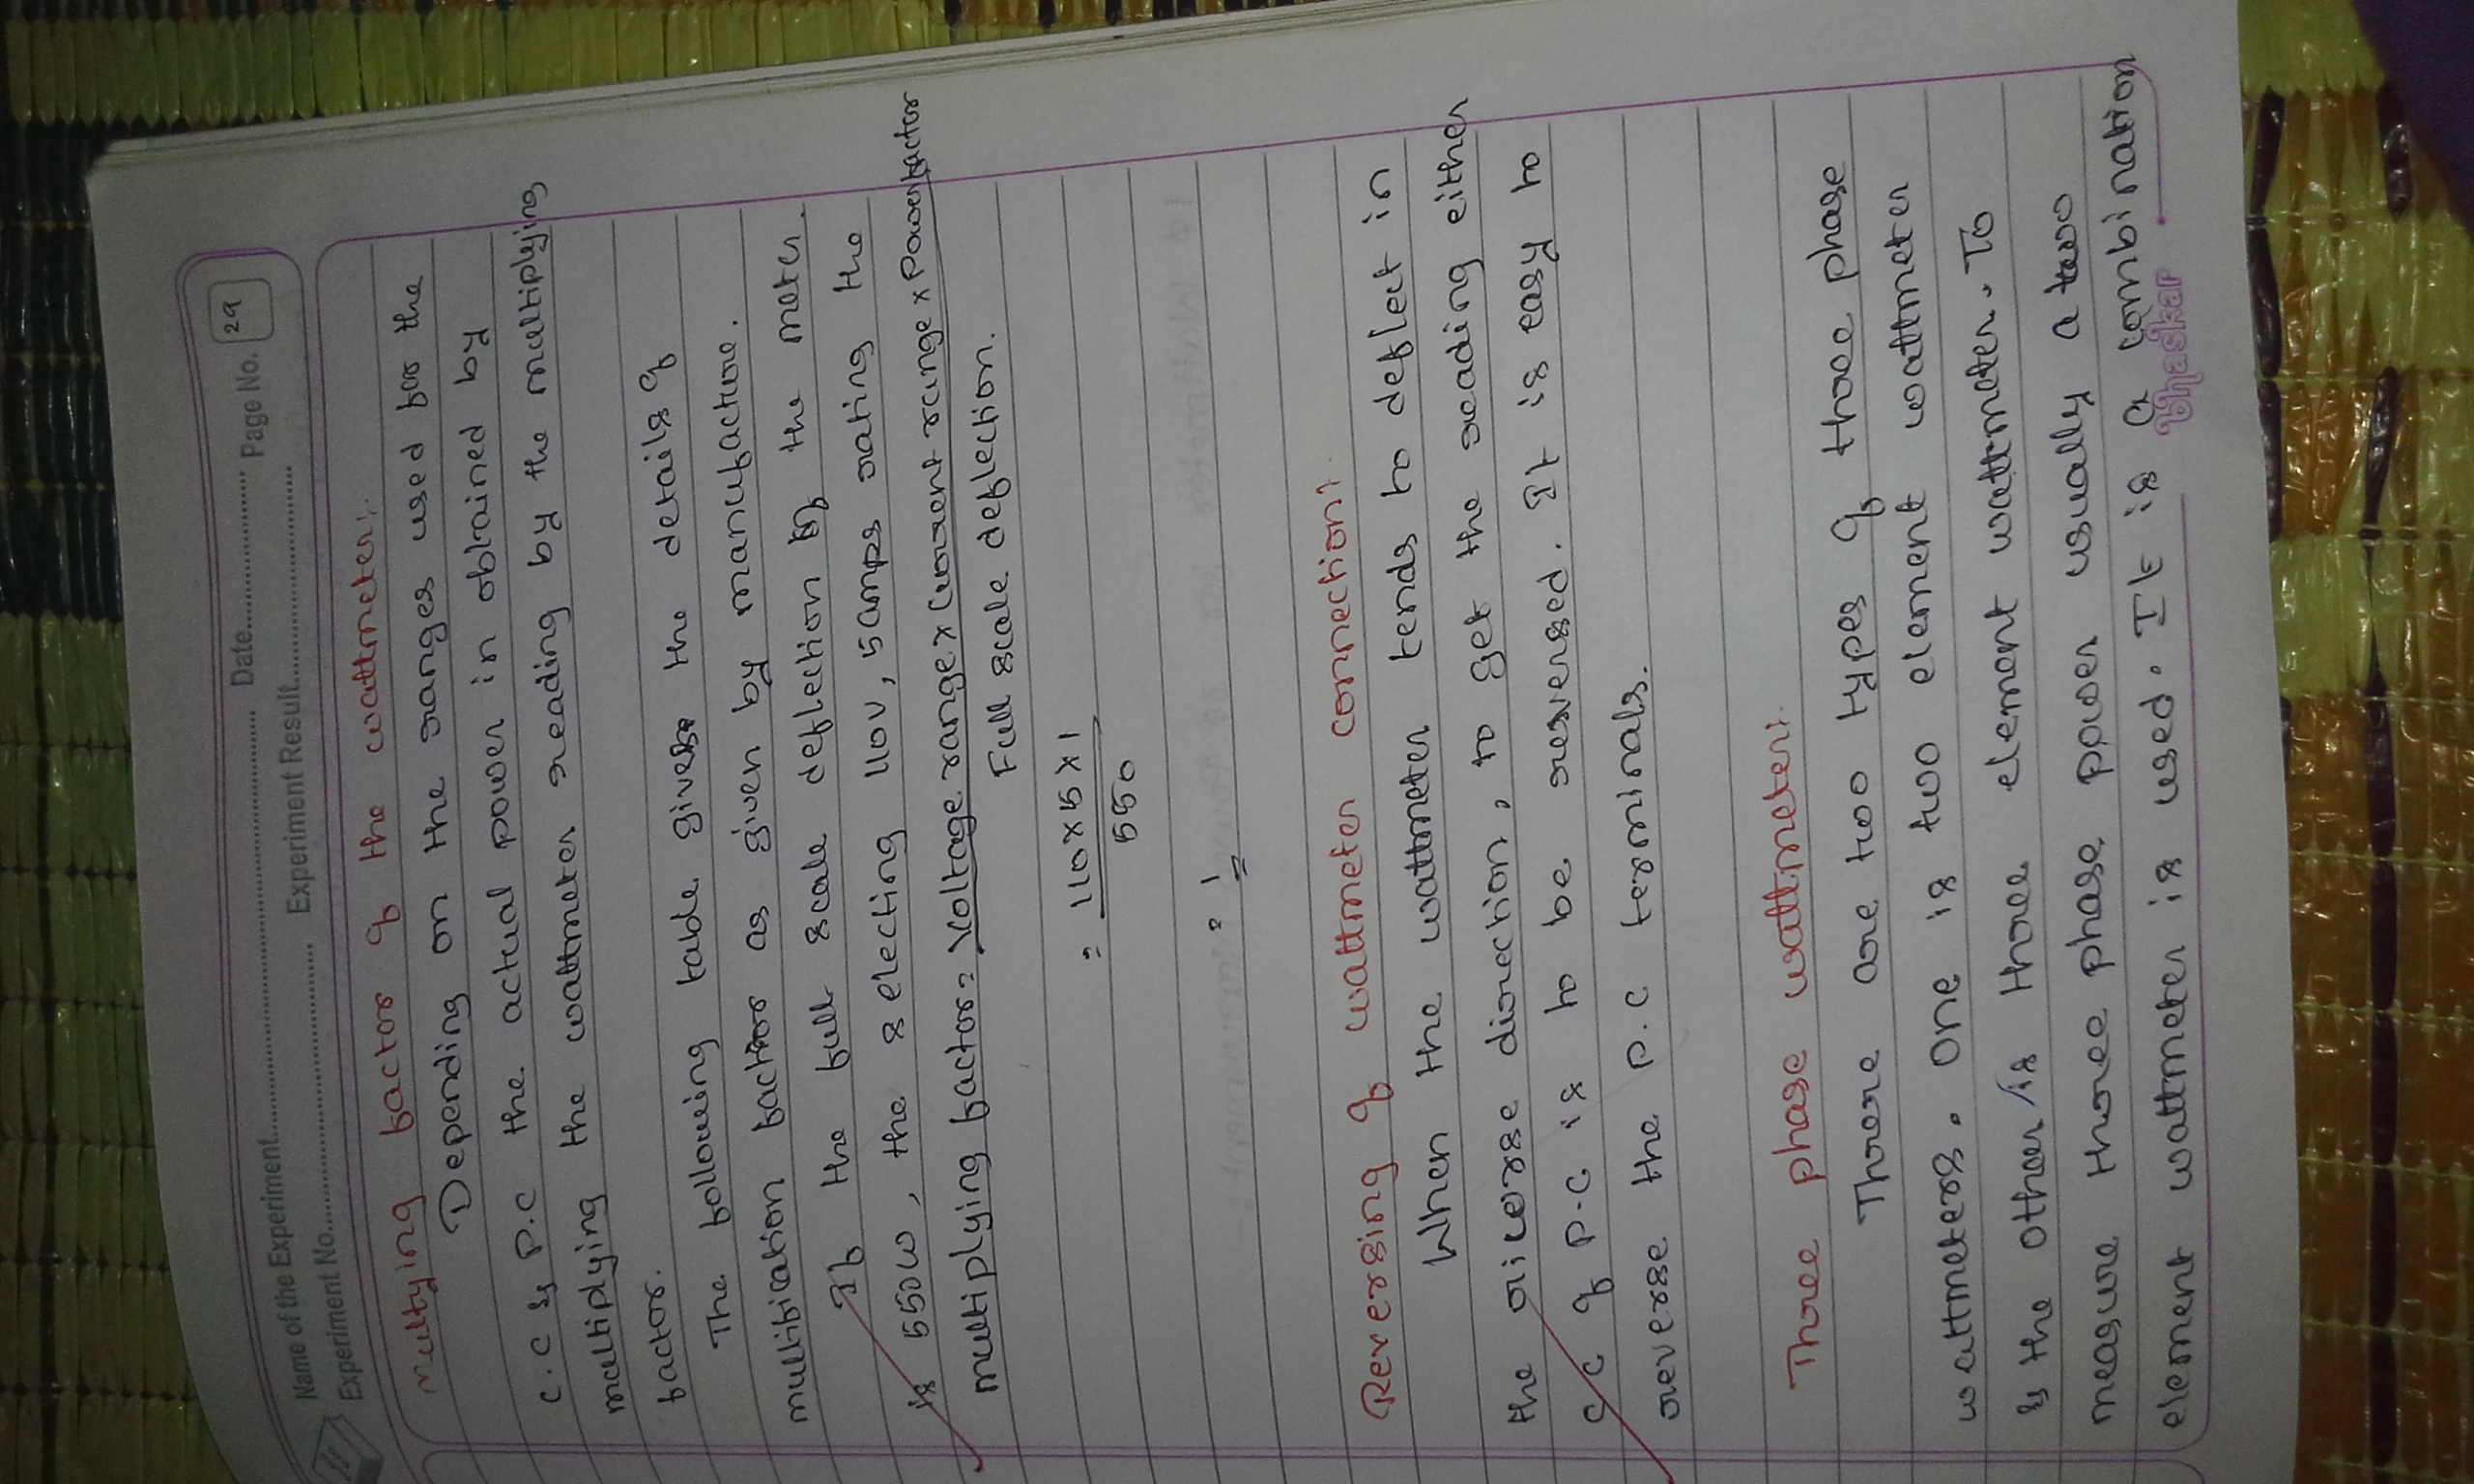 Name of the Experiment.......... Date.......... Page No. 29
Experiment No.......... Experiment Result..........
Multying factor of the wattmeter:
Depending on the ranges used for the
C.C & P.C the actual power in obtained by
multiplying the wattmeter reading by the multiplying
factor.
The following table gives the details of
multification factor as given by manufacture.
If the full scale deflection of the meter
is 550W, the selecting 110V, 5amps rating the
multiplying factor = Voltage range x Current range x Power factor
Full scale deflection.
= 110 x 5 x 1
550
= 1
Reversing of wattmeter connection:
When the wattmeter tends to deflect in
the direction, to get the reading either
C C of P.C is to be reversed. It is easy to
reverse the P.C terminals.
Three phase wattmeter:
There are two types of three phase
wattmeters. One is two element wattmeter
& the other is three element wattmeter. To
measure three phase power usually a two
element wattmeter is used. It is a combination
Bhaskar